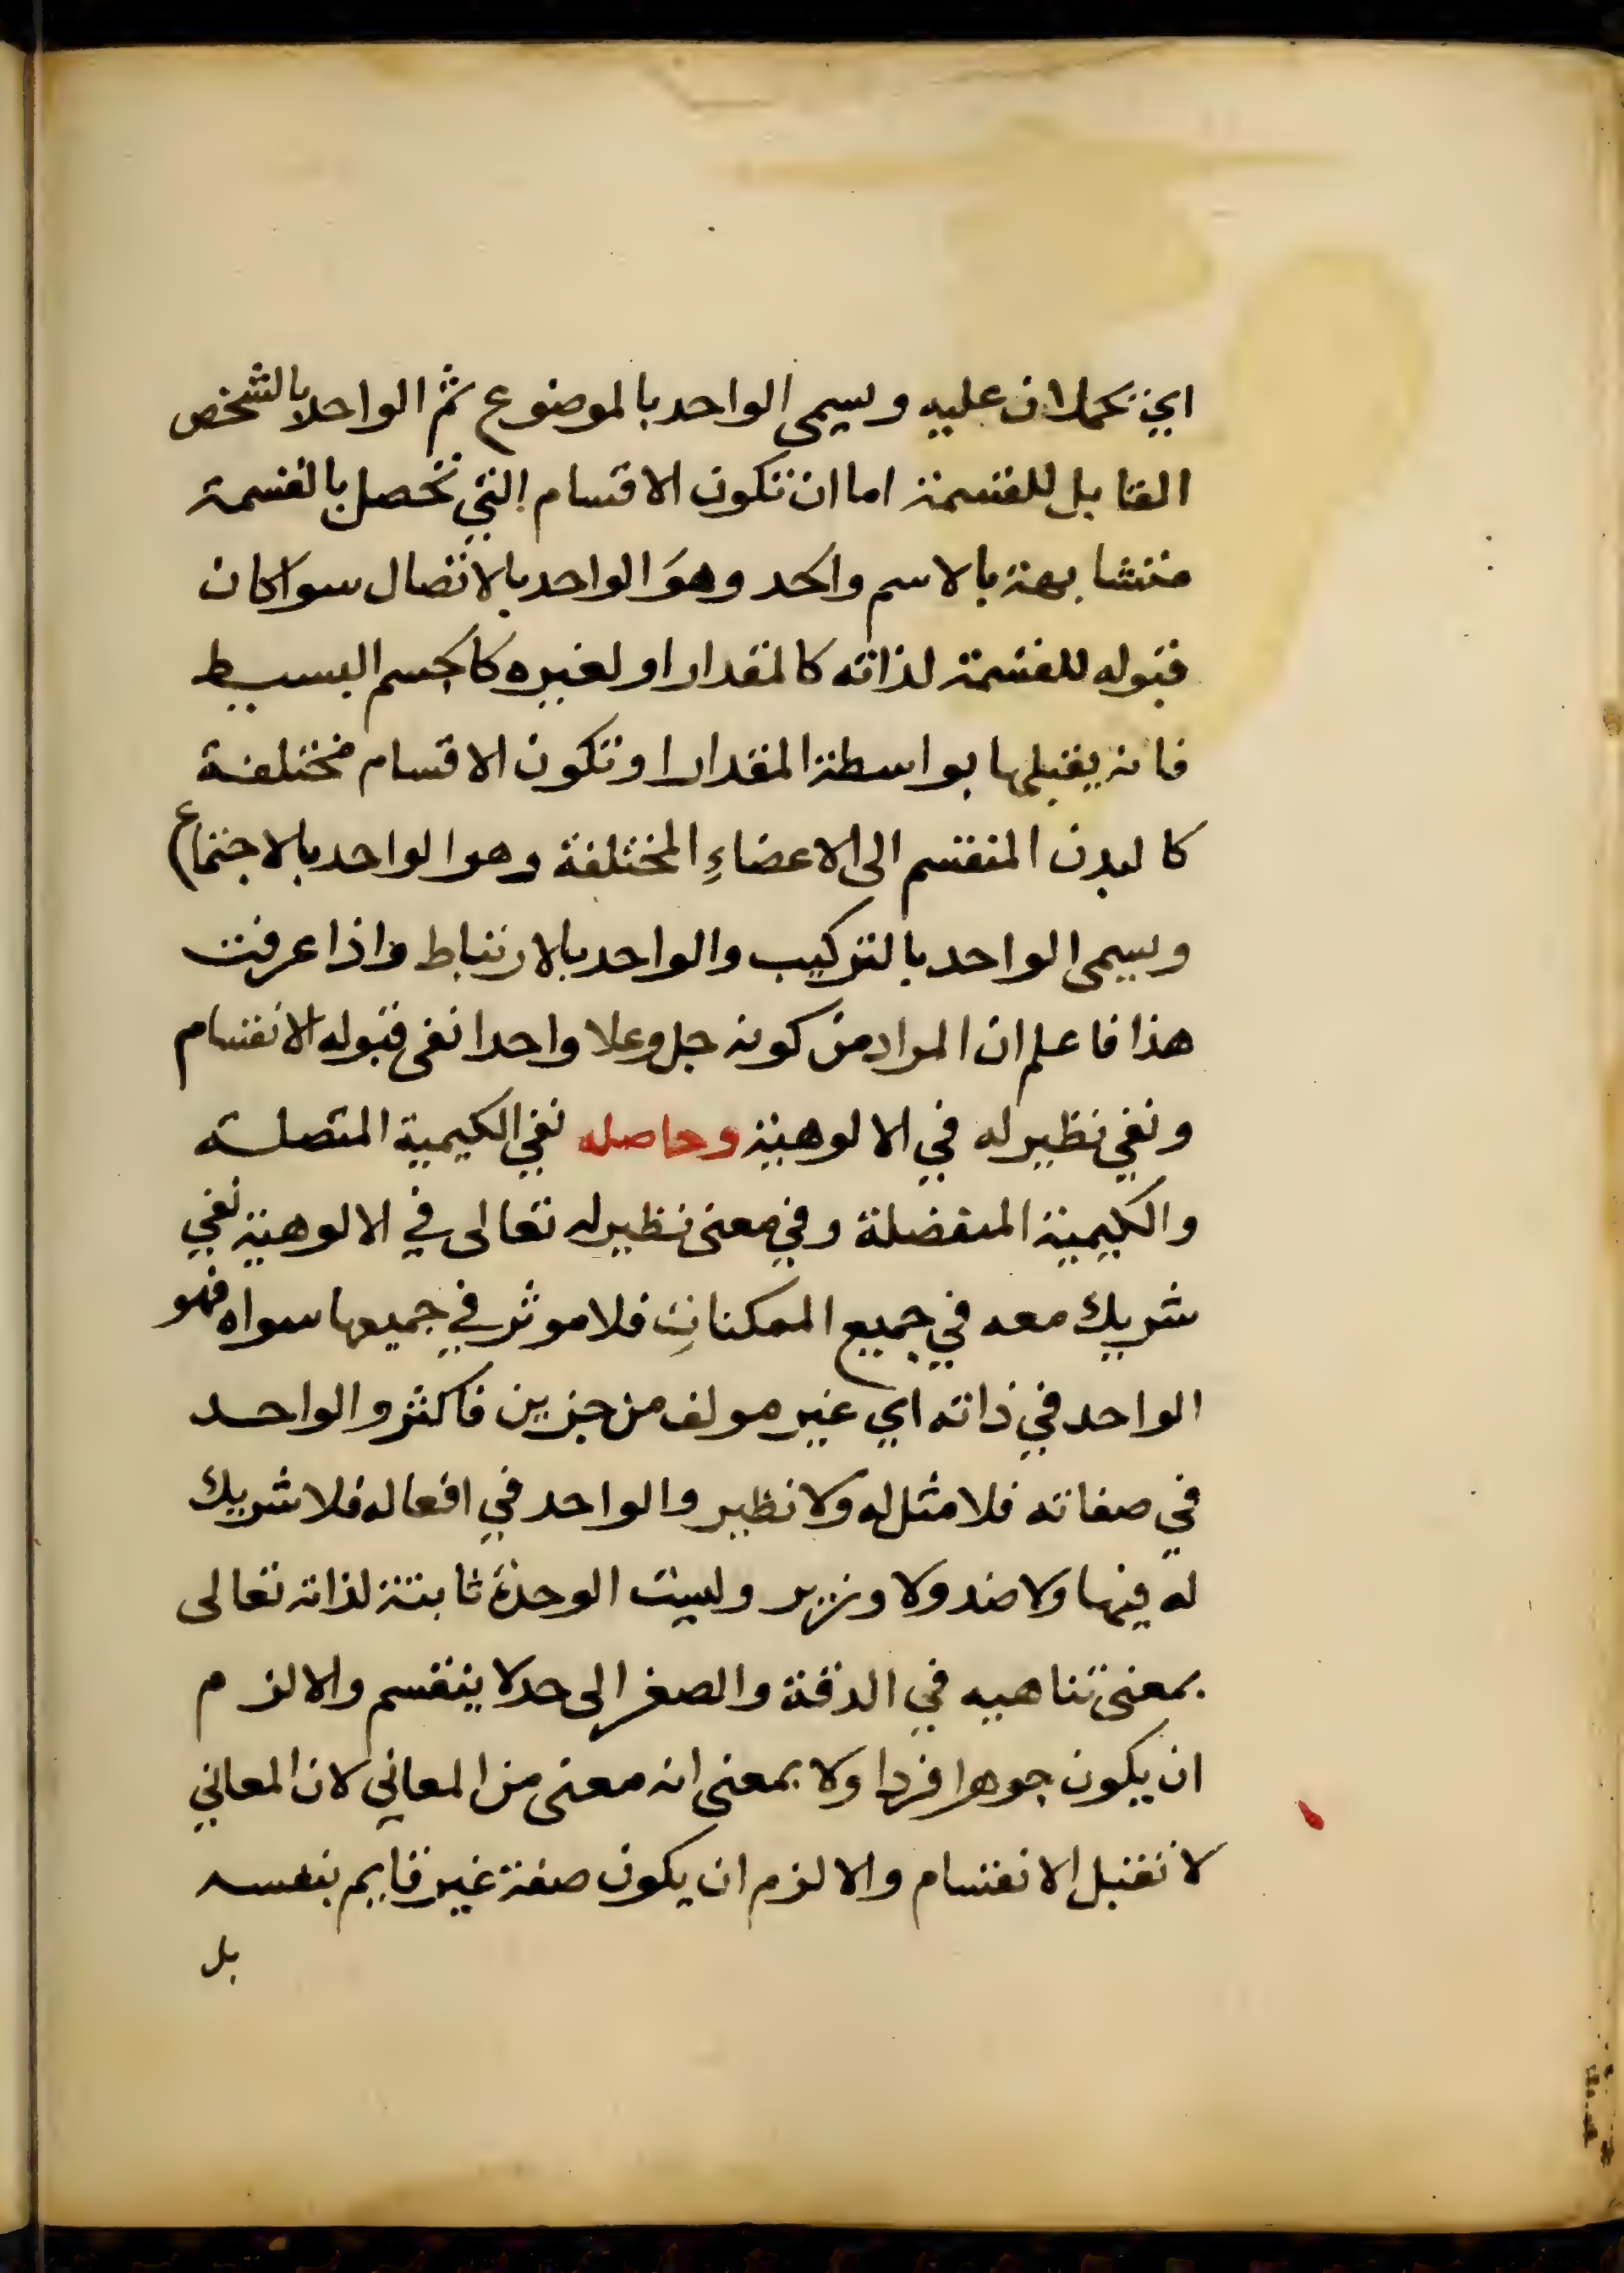 اي يحملان عليه ويسمى الواحد بالموضوع ثم الواحد بالشخص
القابل للقسمة اما ان تكون الاقسام التي تحصل بالقسمة
متشابهة بالاسم والحد وهوَ الواحد بالاتصال سوا كان
قبوله للقسمة لذاته كالمقدار او لغيره كالجسم البسيط
فانه يقبلها بواسطة المقدار او تكون الاقسام مختلفة
كالبدن المنقسم الى الاعضاءِ المختلفة وهو الواحد بالاجتماع
ويسمى الواحد بالتركيب والواحد بالارتباط واذا عرفت
هذا فاعلم ان المراد من كونه جل وعلا واحدا نفى قبوله الانقسام
ونفي نظير له في الالوهية وحاصله نفي الكيمية المتصلة
والكيمية المنفصلة وفي معنى نظير له تعالى في الالوهية نفي
شريك معه في جميع الممكناتِ فلا موثر في جميعها سواه فهو
الواحد في ذاته اي غير مولف من جزيين فاكثر والواحد
في صفاته فلا مثل له ولا نظير والواحد في افعاله فلا شريك
له فيها ولا ضد ولا وزير وليست الوحدة ثابتة لذاته تعالى
بمعنى تناهيه في الدقة والصغر الى حد لا ينقسم والا لزم
ان يكون جوهرا فردا ولا بمعنى انه معنى من المعاني لان المعاني
لا تقبل الانقسام والا لزم ان يكون صفة غير قايم بنفسه
بل